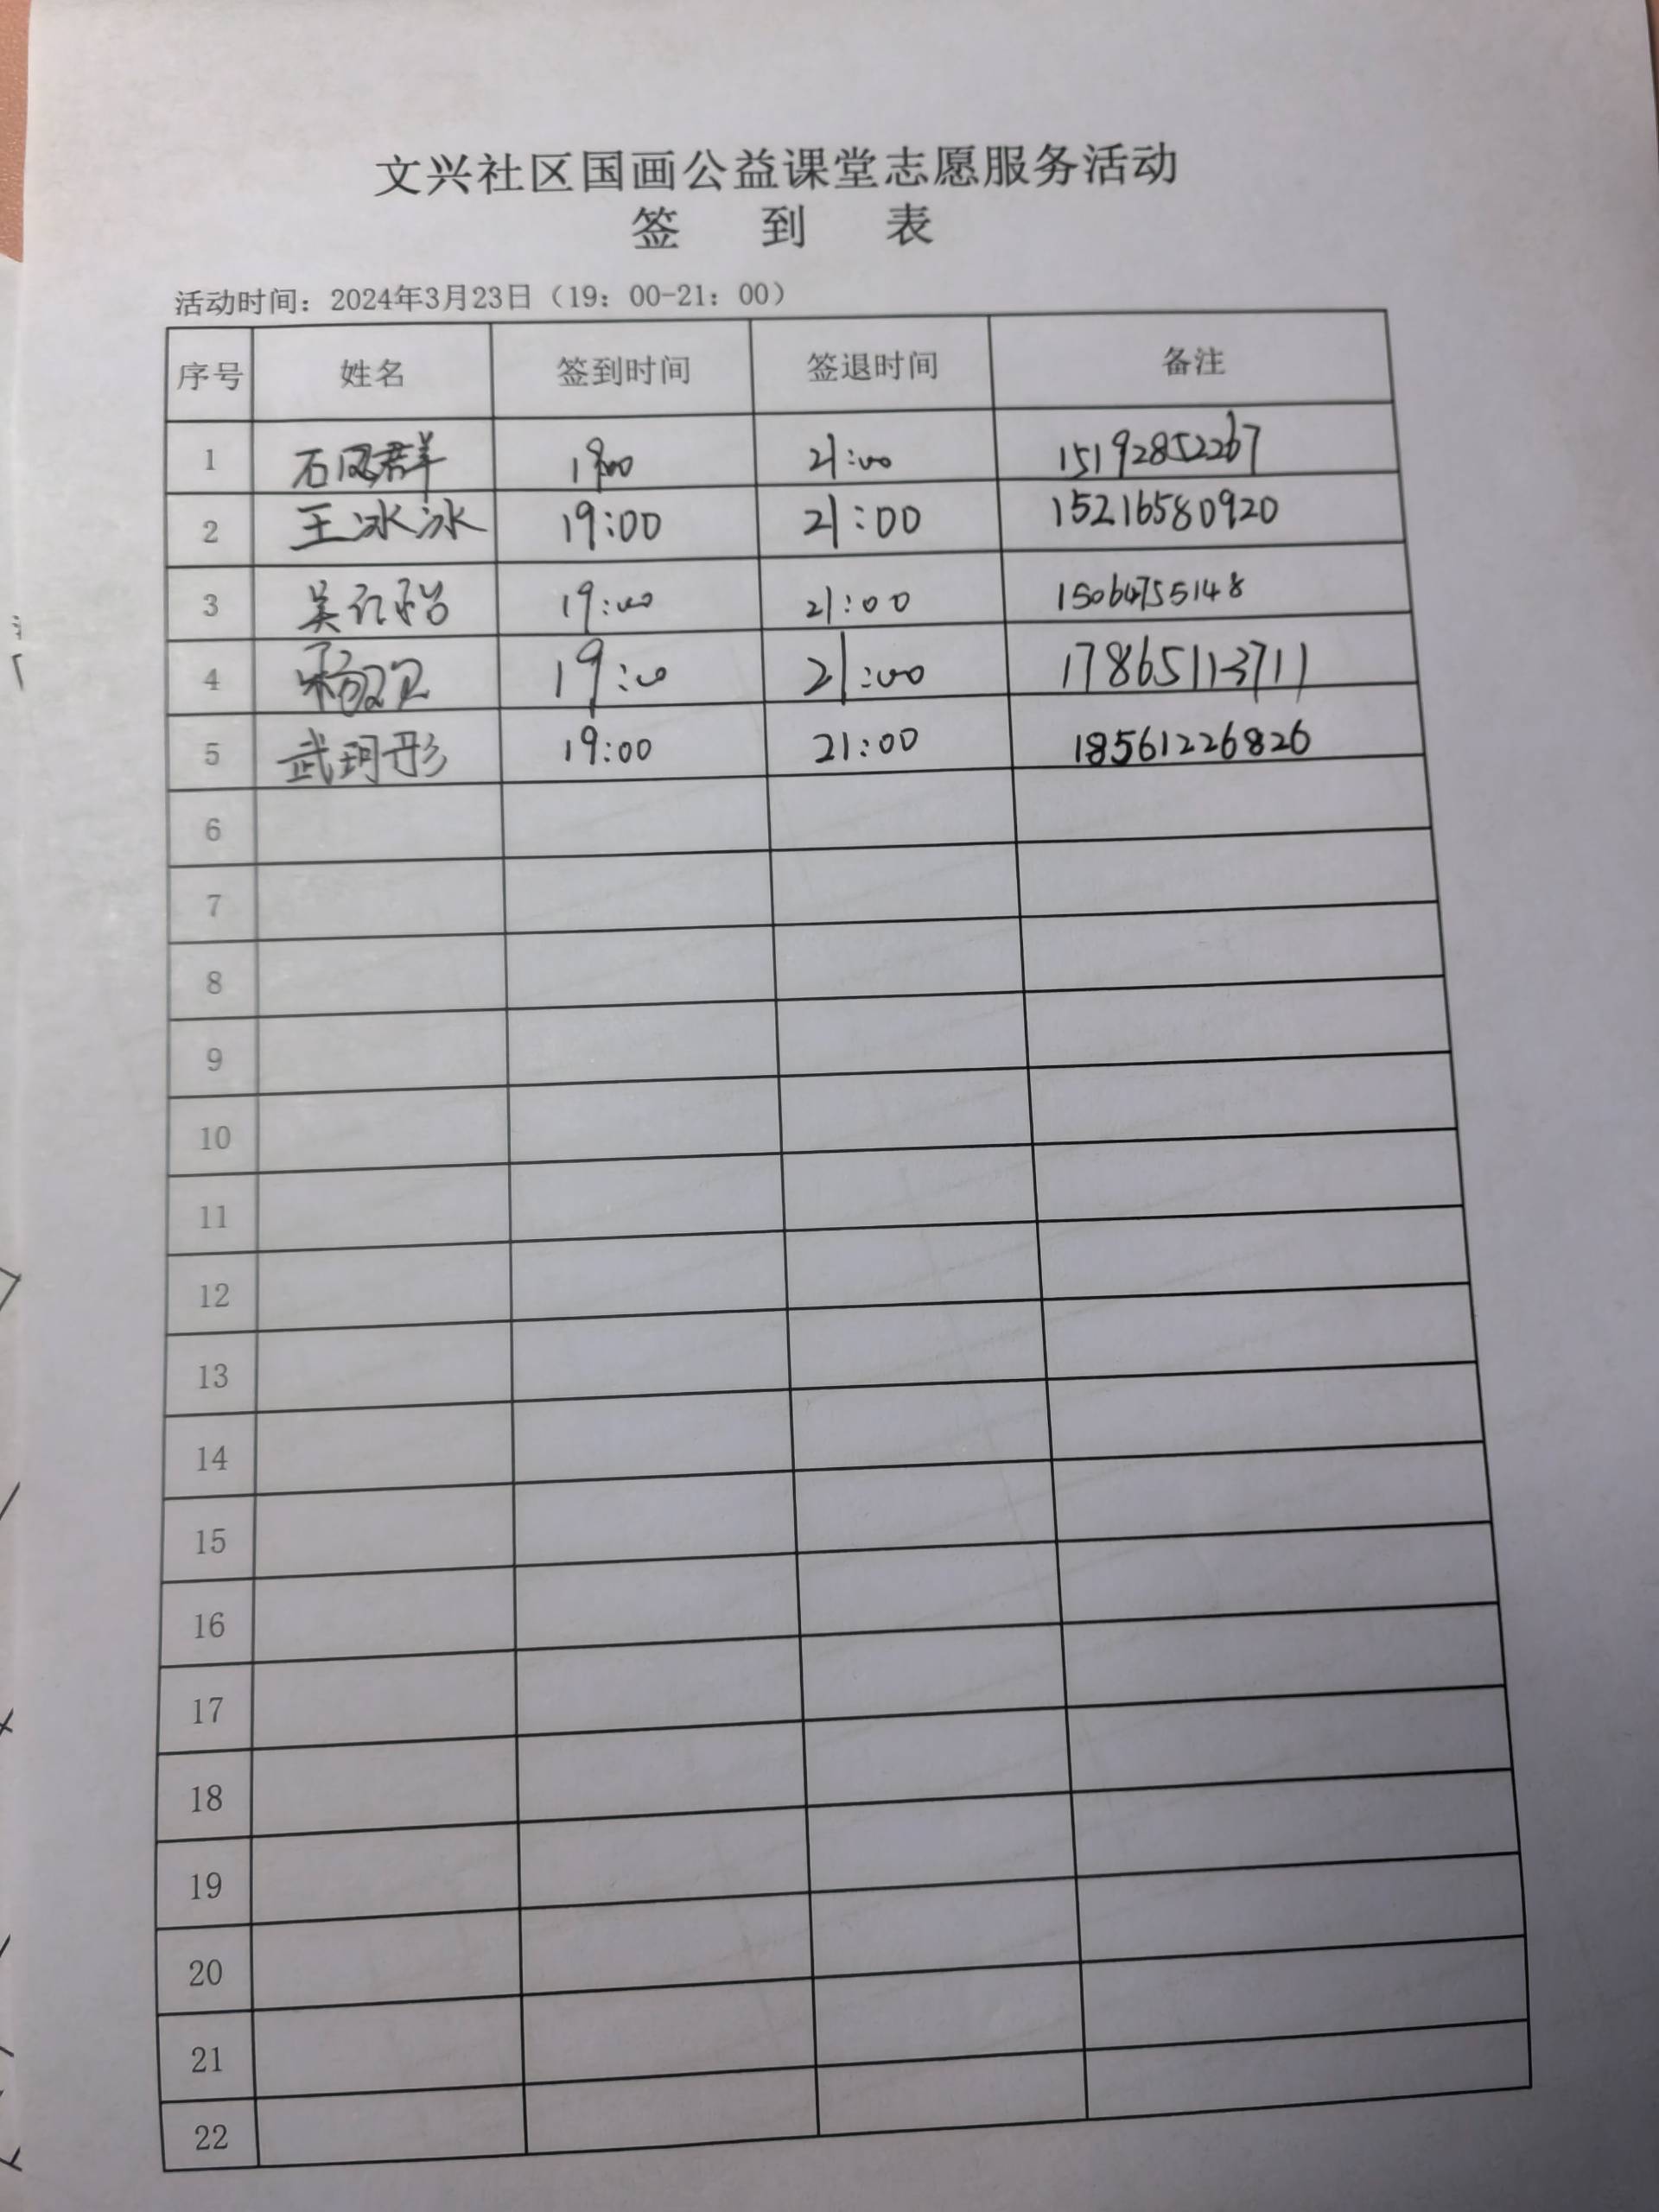 文兴社区国画公益课堂志愿服务活动
签 到 表
活动时间：2024年3月23日（19：00-21：00）
序号 姓名 签到时间 签退时间 备注
1 石凤群 19:00 21:00 15192852267
2 王冰冰 19:00 21:00 15216580920
3 吴 19:00 21:00 15064755148
4 杨 19:00 21:00 17865113711
5 武珂彤 19:00 21:00 18561226826
6
7
8
9
10
11
12
13
14
15
16
17
18
19
20
21
22